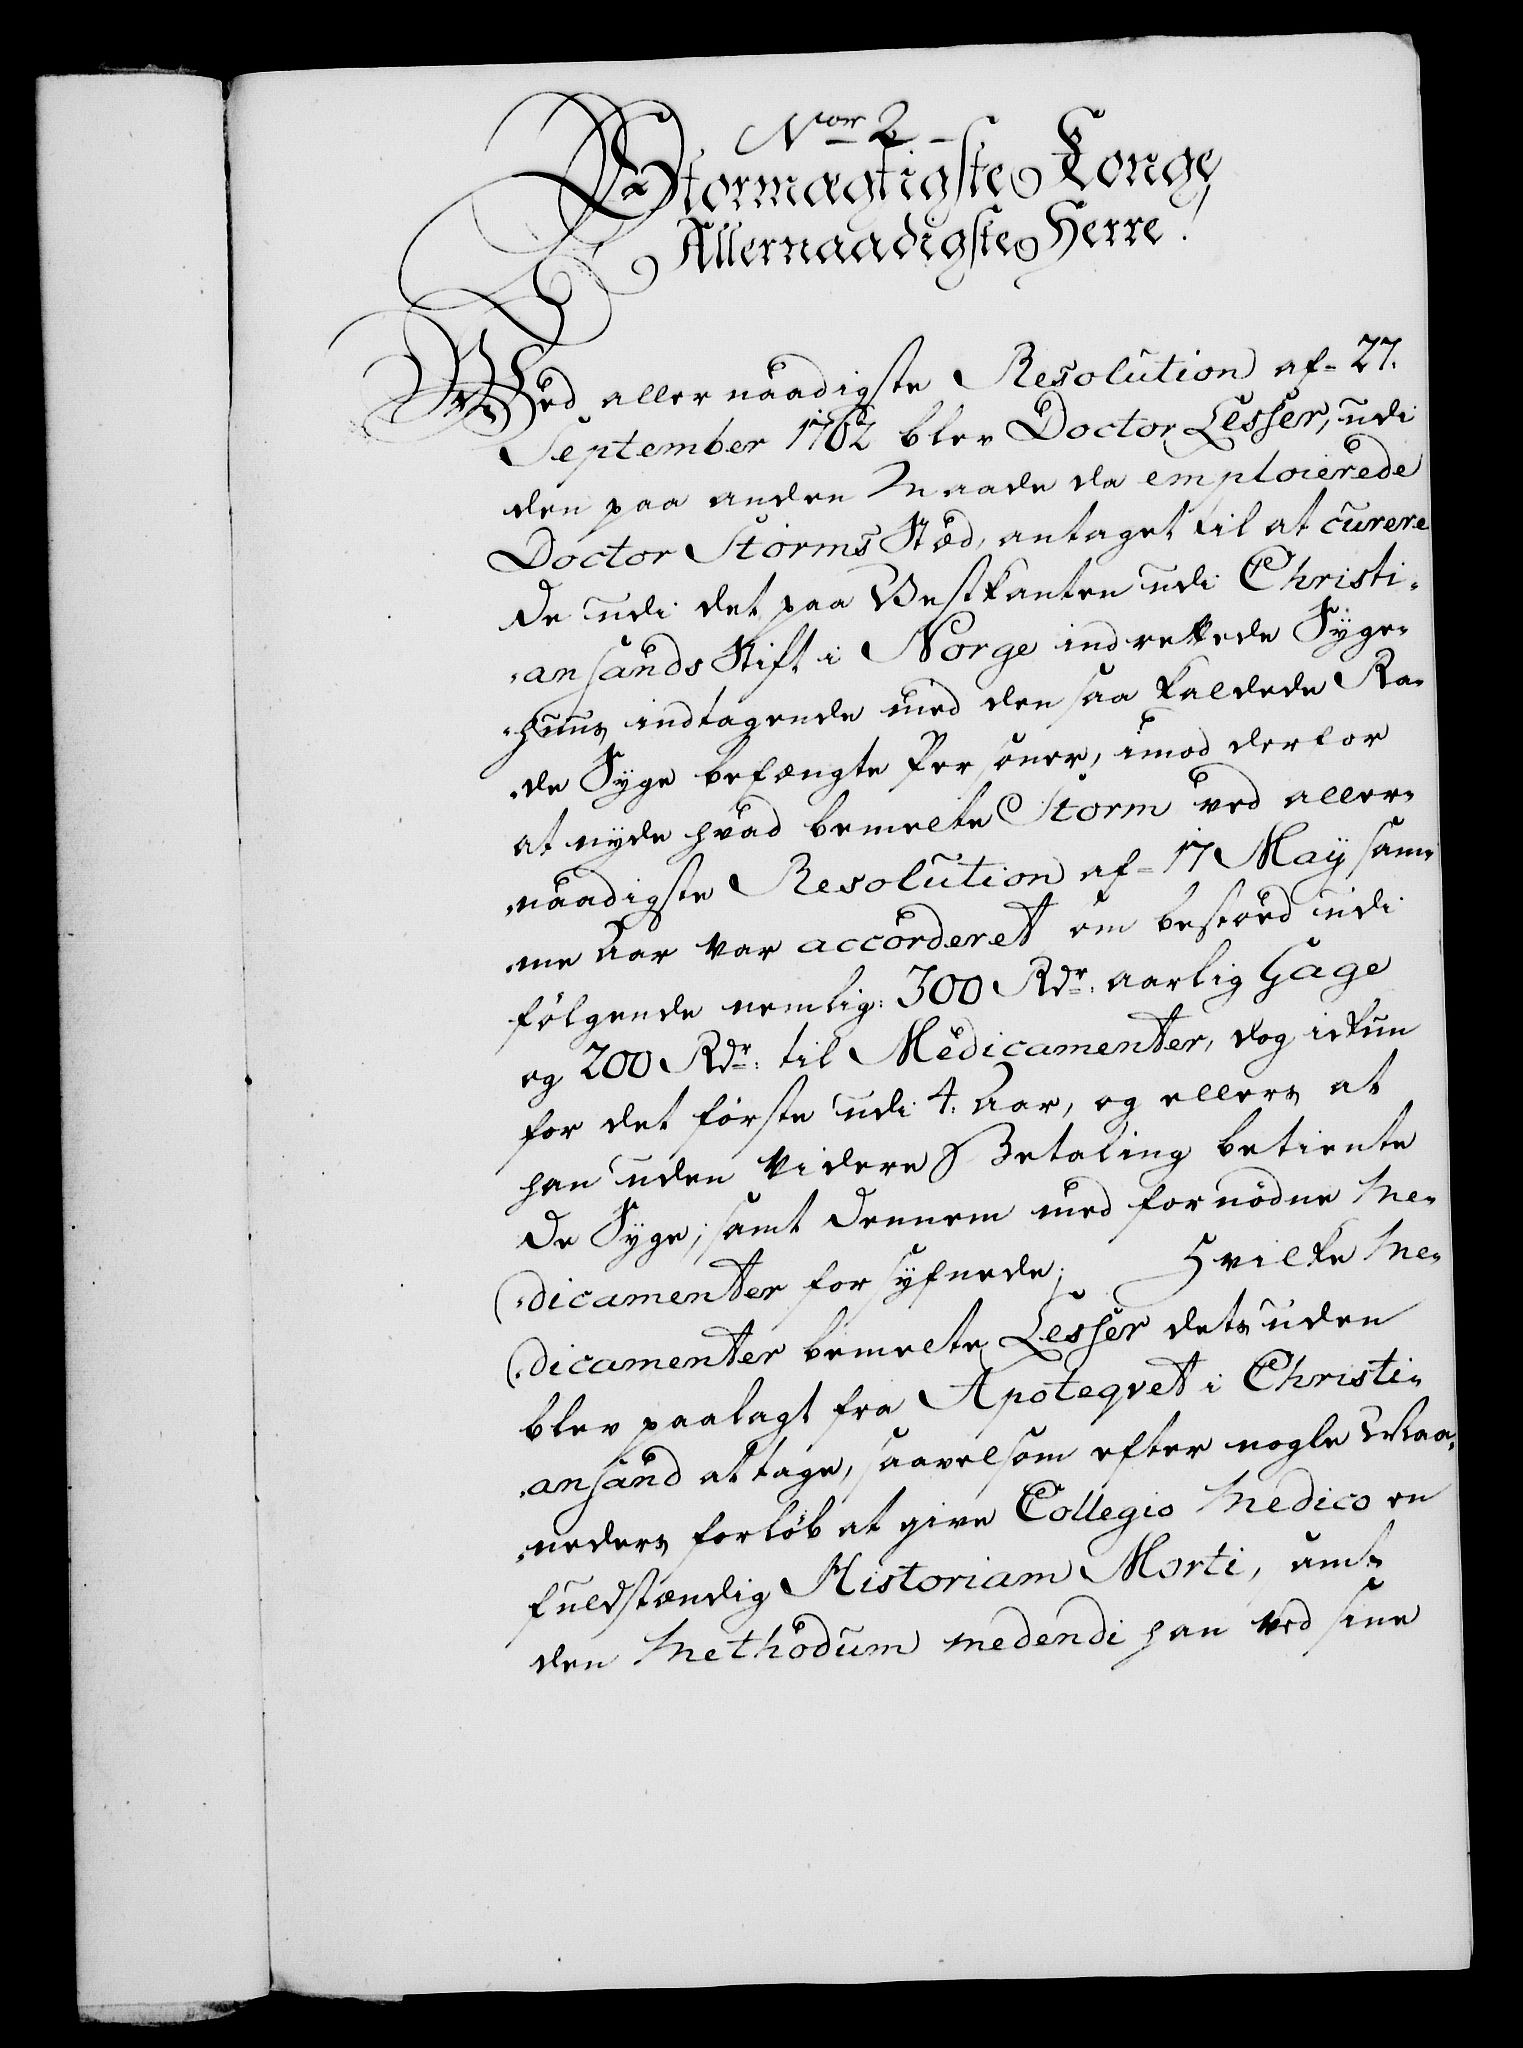 Nor 2
Stormægtigste Konge
Allernaadigste Herre!
Ved allernaadigste Resolution af 27.
September 1762 blev Doctor Lesser, udi
den paa anden Maade da emploierede
Doctor Storms Stæd, antaget til at curere
De udi det paa Vestkanten udi Christi-
-ansands Stift i Norge indrettede Syge-
-huus indtagende med den saa kaldede Ra-
-de Syge befængte Personer, imod derfor
at nyde hvad bemelte Storm ved aller-
-naadigste Resolution af 17 May sam-
-me Aar var accorderet om bestoed udi
følgende nemlig: 300 Rdr. aarlig Gage
og 200 Rdr. til Medicamenter, dog ickun
for det første udi 4. Aar, og ellers at
han uden Videre Betaling betiente
De Syge, samt Dennem med fornødne Me-
-dicamenter forsyfnede; Hvilke Me-
-dicamenter bemelte Lesser dets uden
blev paalagt fra Apoteqvet i Christi-
-ansand at tage, saavelsom efter nogle Maa-
-neders forløb at give Collegio Medico en
fuldstændig Historiam Morti, samt
den Methodum medendi han ved sine